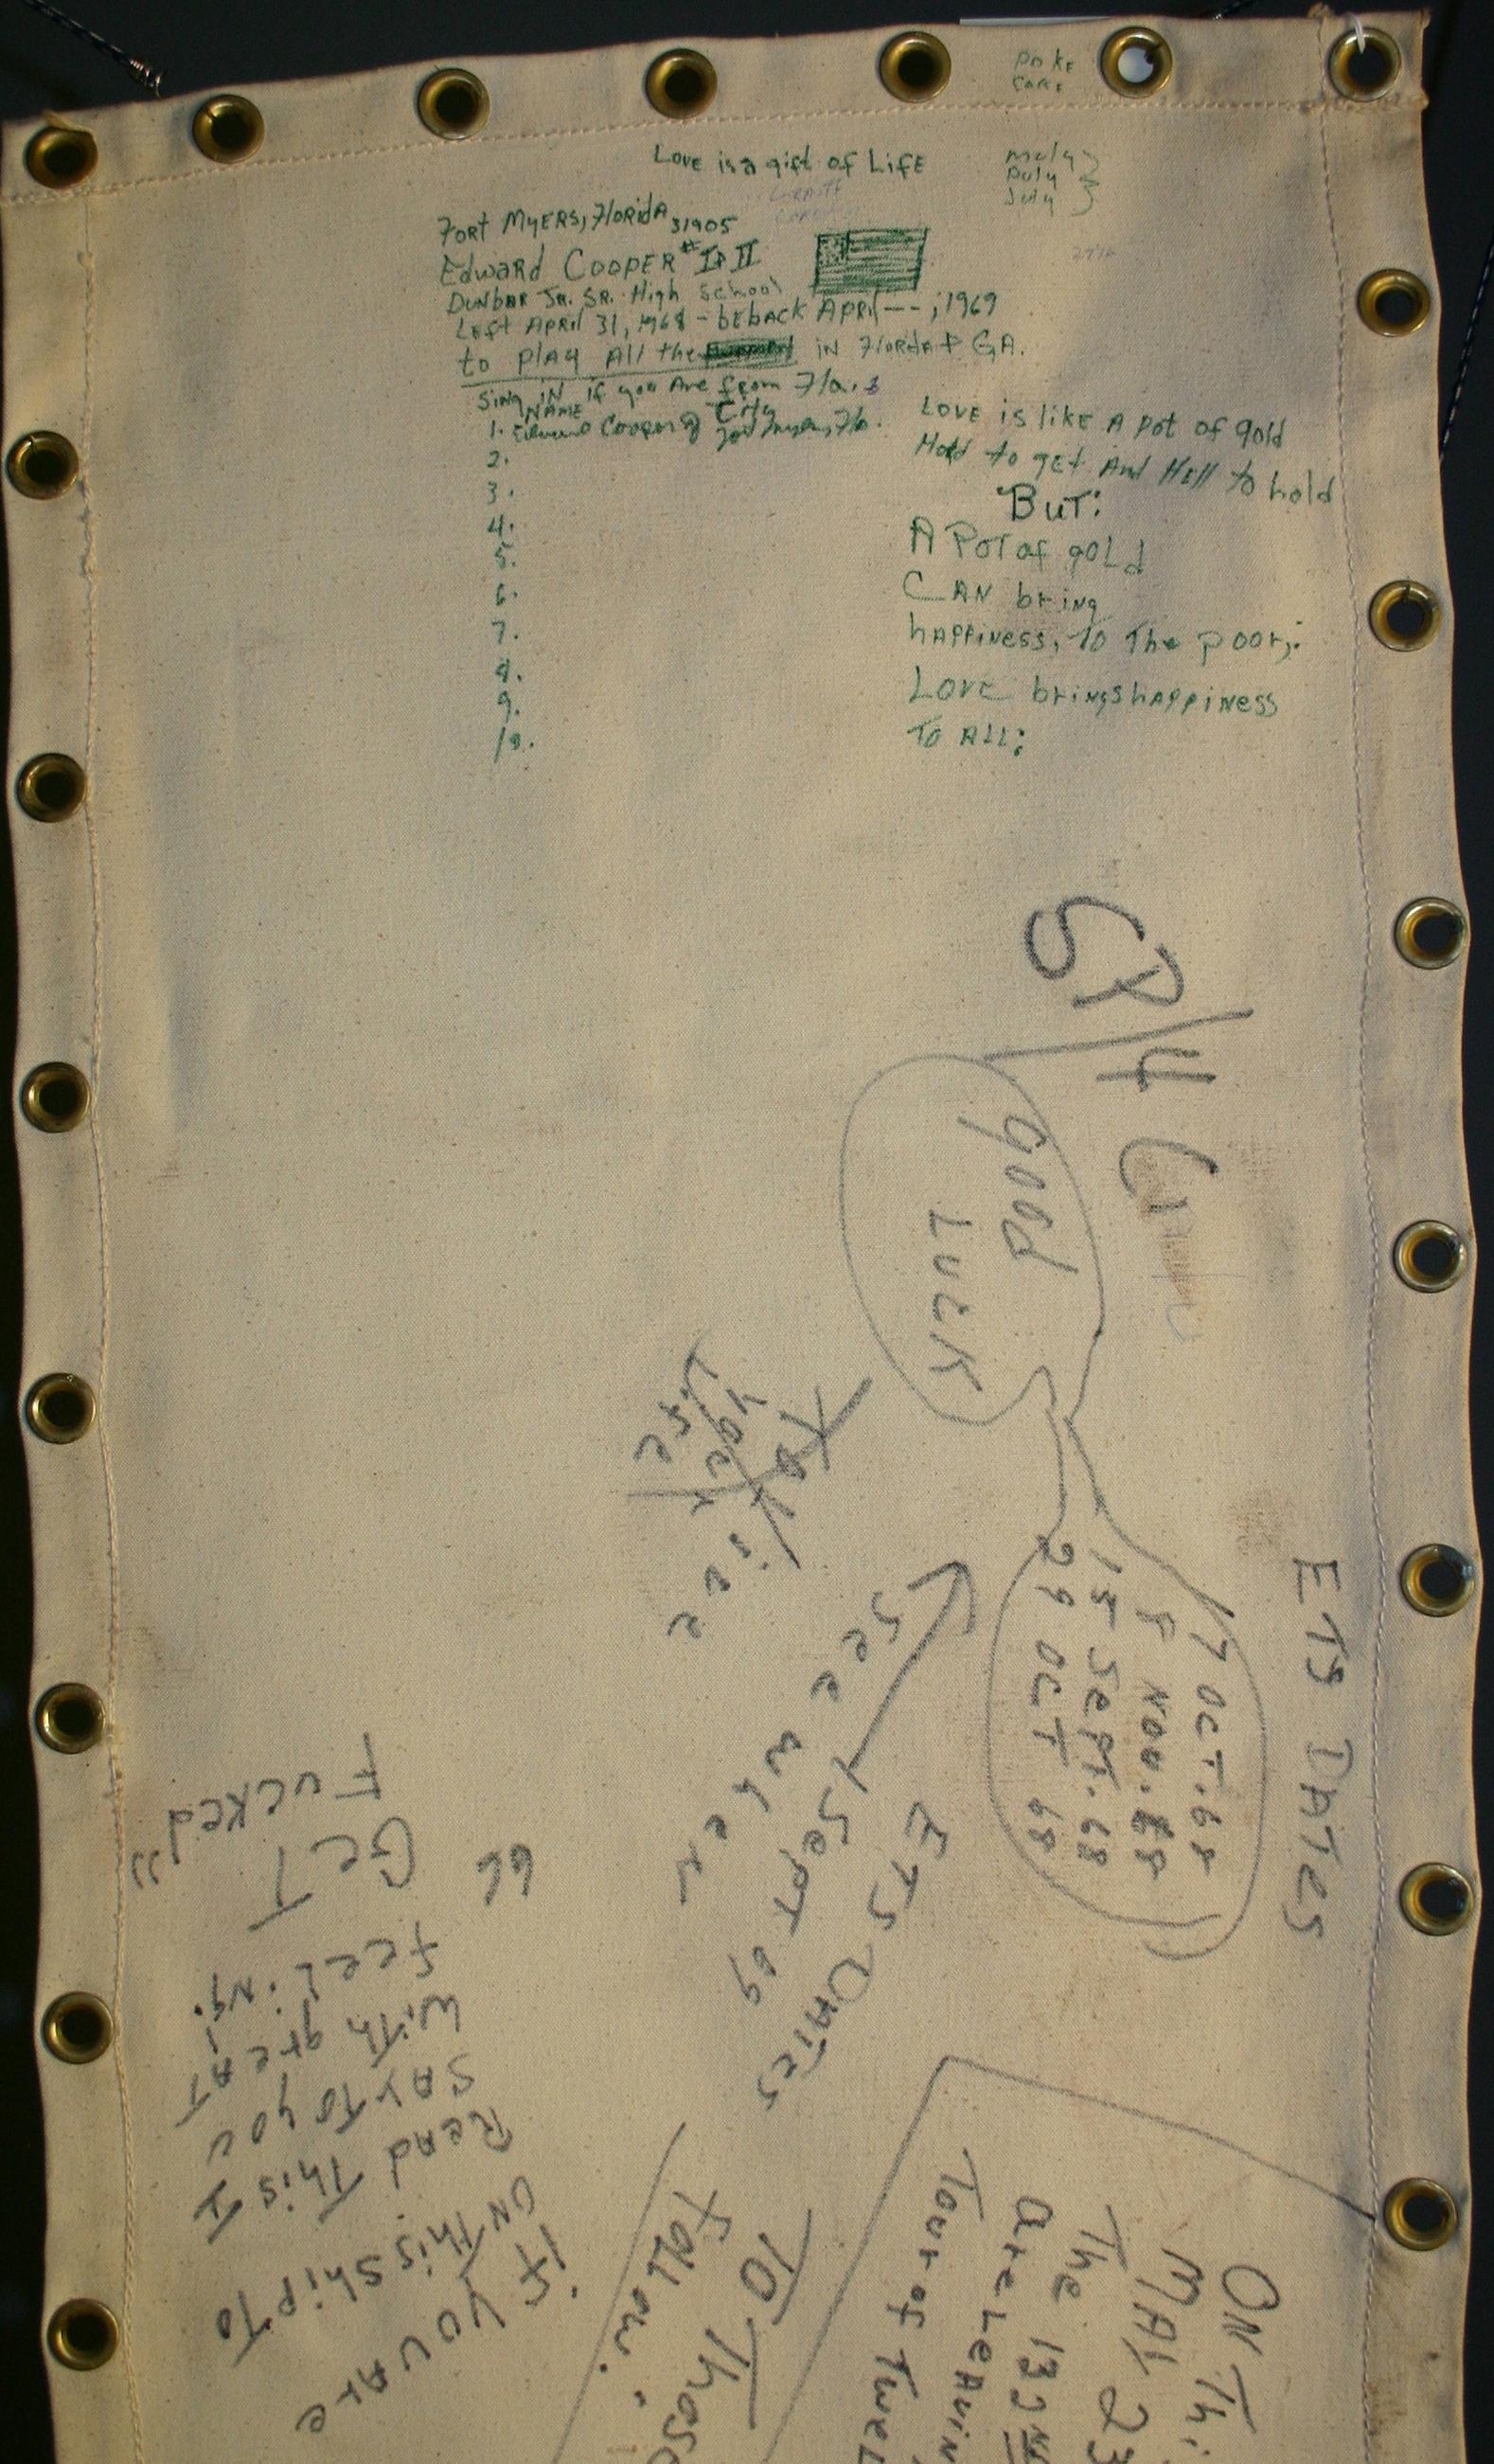 Love is a gift of LifE
Fort MyERS, Florida 31905
Edward CooPER # II
DUNbAR JR. SR. High School
Left APRil 31, 1968 - bEback APRil -- ; 1969
to play All the IN FloRdA + GA.
Sing iN if you Are from Fla.
NAME City
1. Cooper
2.
3.
4.
5.
6.
7.
8.
9.
10.
LOVE is likE A pot of gold
HaRd to gEt And HEll to hold
BuT:
A PoT of gOLd
CAN bring
hAPPiNess, To The poor;
LovE brings hAppiNess
To ALL;
SP/4
good
Luck
ETS DATES
17 OCT. 68
5 NOV. 68
15 SePT. 68
29 OCT 68
Life
See when
1 SePT 69
ETS DATES
"GeT
Fucked"
if YOU Are
ON This Ship To
ReAd This I
SAY To you
WiTh greAT
feeLiNg.
TO Those
FoLLow.
ON Thi
MAY 23
The 132
Are LeAviN
Tour of TweL